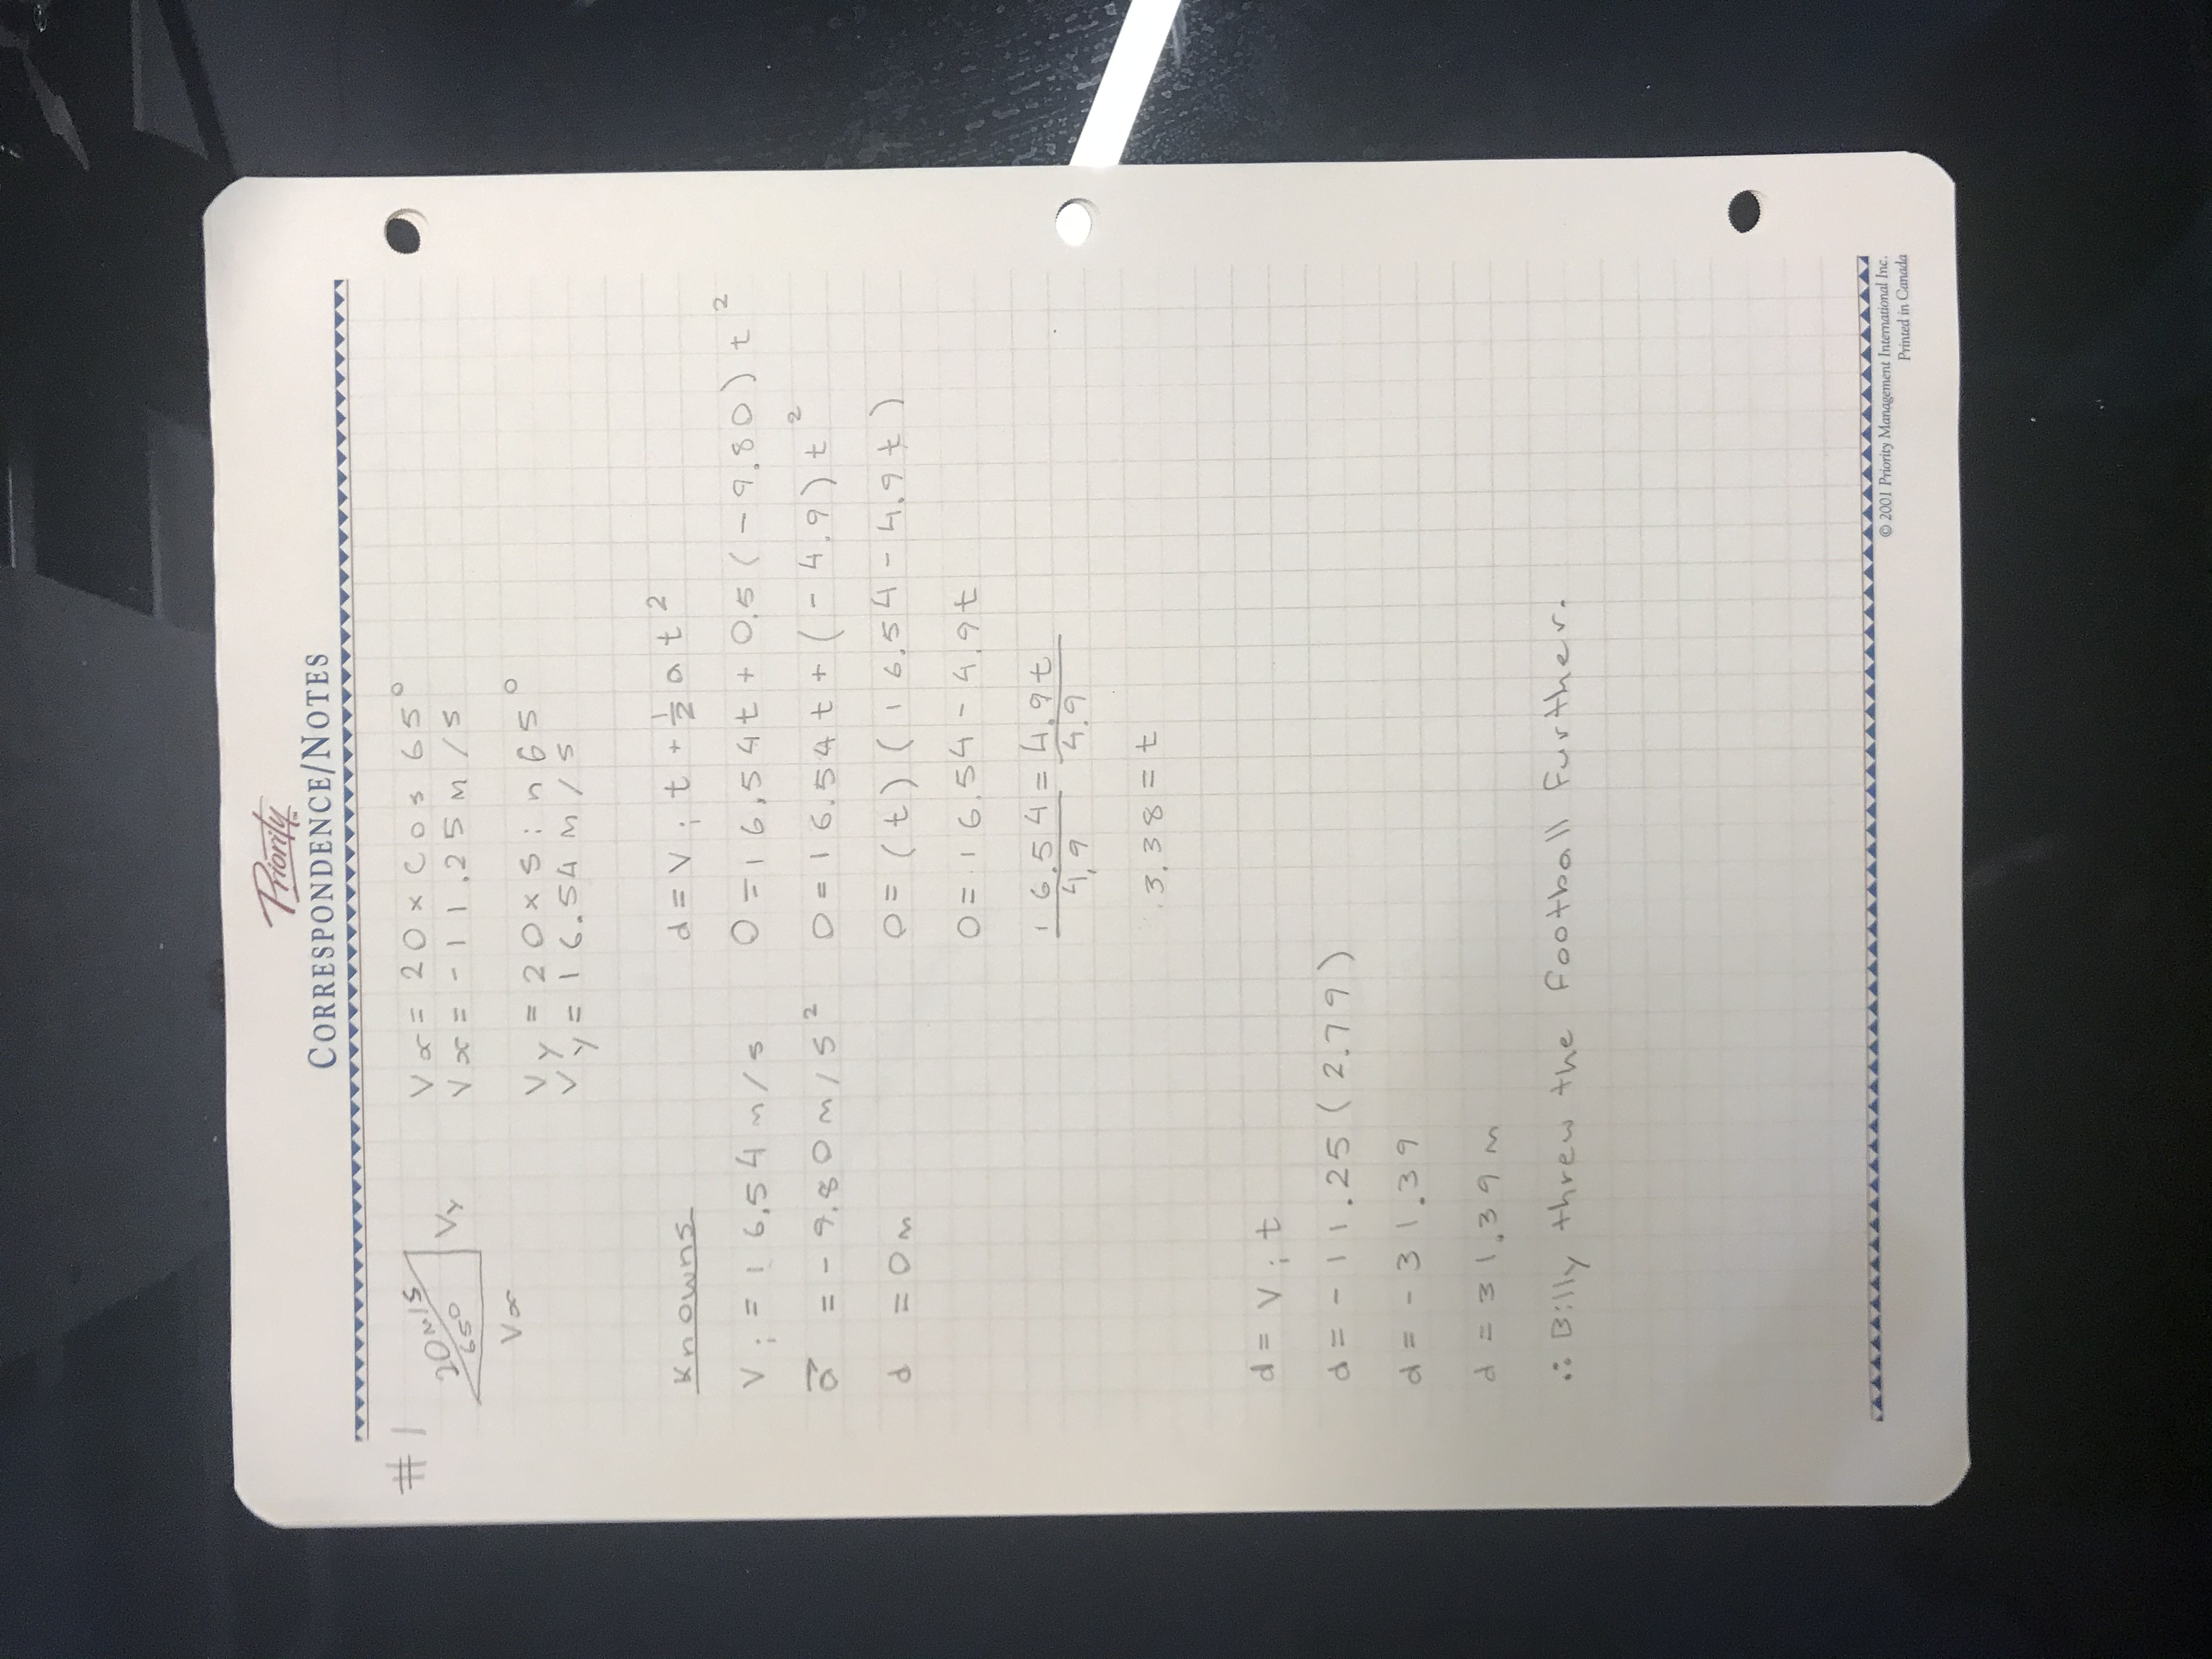 Priority
CORRESPONDENCE/NOTES
#1
20m/s
65°
Vy
Vx
Vx = 20 x Cos 65°
Vx = -11.25 m/s
Vy = 20 x Sin 65°
Vy = 16.54 m/s
Knowns
Vi = 16.54 m/s
a⃗ = -9.80 m/s²
d = 0 m
d = Vit + ½at²
0 = 16.54t + 0.5(-9.80)t²
0 = 16.54t + (-4.9)t²
0 = (t)(16.54 - 4.9t)
0 = 16.54 - 4.9t
16.54 = 4.9t
4.9 4.9
3.38 = t
d = Vit
d = -11.25(2.79)
d = -31.39
d = 31.39 m
∴ Billy threw the football further.
© 2001 Priority Management International Inc.
Printed in Canada